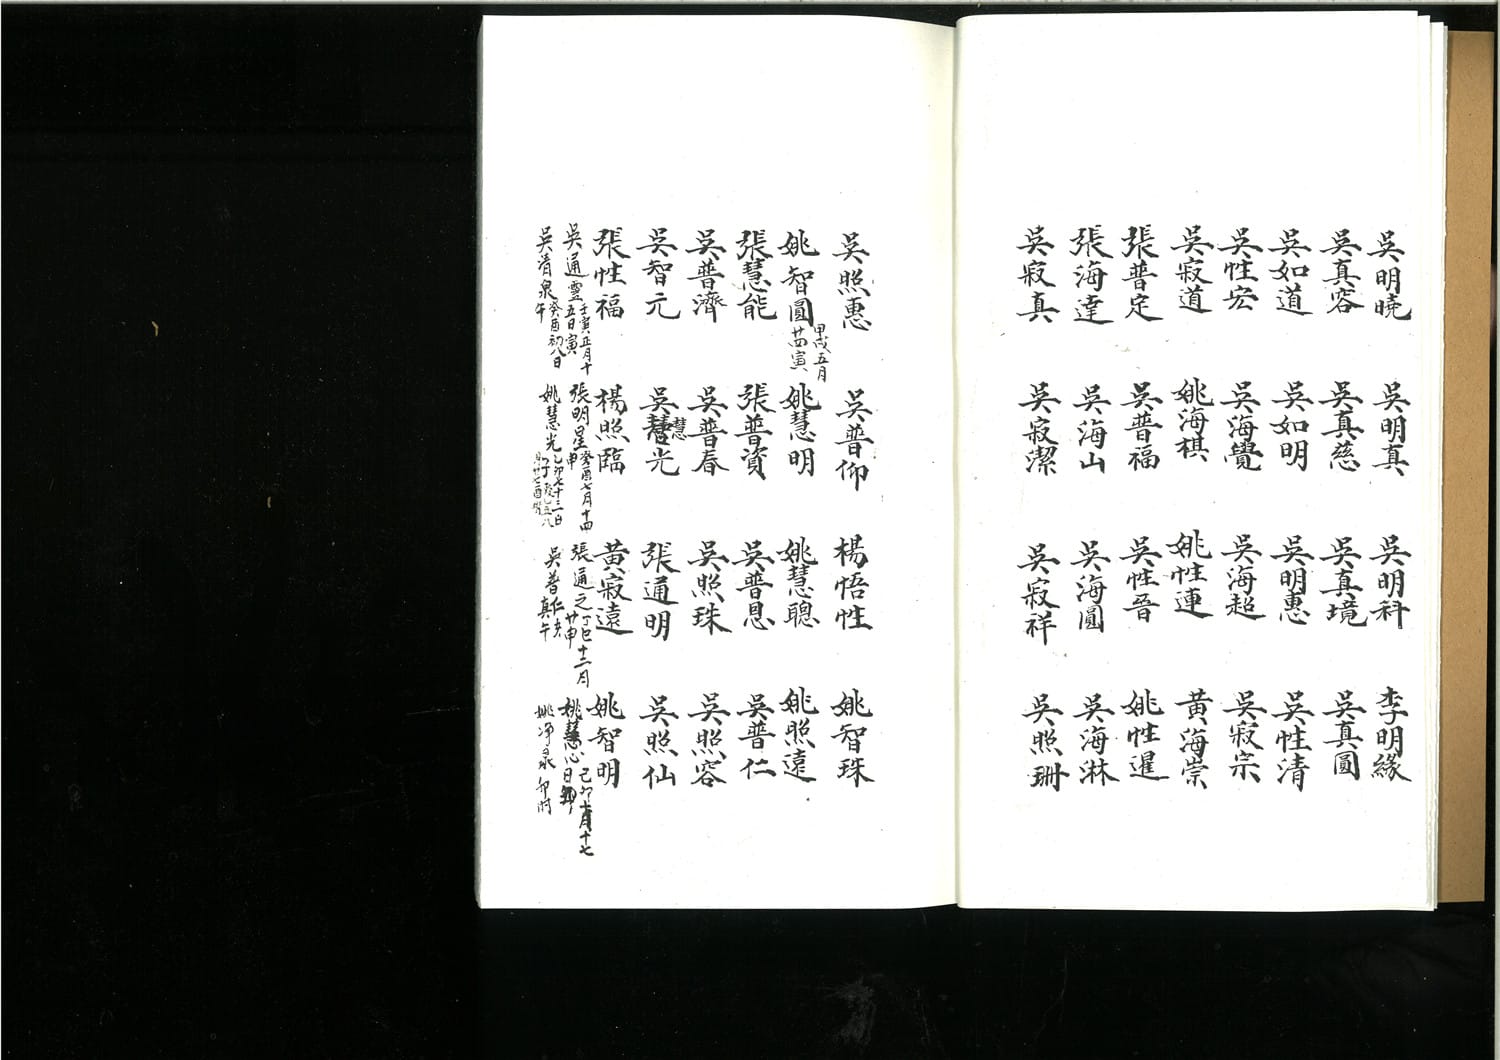 吳明曉 吳明真 吳明科 李明緣
吳真容 吳真慈 吳真境 吳真圓
吳如道 吳如明 吳明惠 吳性清
吳性宏 吳海覺 吳海超 吳寂宗
吳寂道 姚海棋 姚性連 黃海崇
張普定 吳普福 吳性晉 姚性暹
張海達 吳海山 吳海圓 吳海淋
吳寂真 吳寂潔 吳寂祥 吳照珊
吳照惠 吳普仰 楊悟性 姚智珠
姚智圓 甲戌五月廿四寅 姚慧明 姚慧聰 姚照遠
張慧能 張普資 吳普恩 吳普仁
吳普濟 吳普春 吳照珠 吳照容
吳智元 吳慧光 慧 張通明 吳照仙
張性福 楊照臨 黃寂遠 姚智明
吳通靈 壬寅正月十五日寅 張明星 癸酉七月十四申 張通之 丁巳十二月廿申 姚慧心 己卯十月十七日卯
吳清泉 癸酉初八日午 姚慧光 乙卯七十三日 吳普仁 真午 姚淨泉 卯时